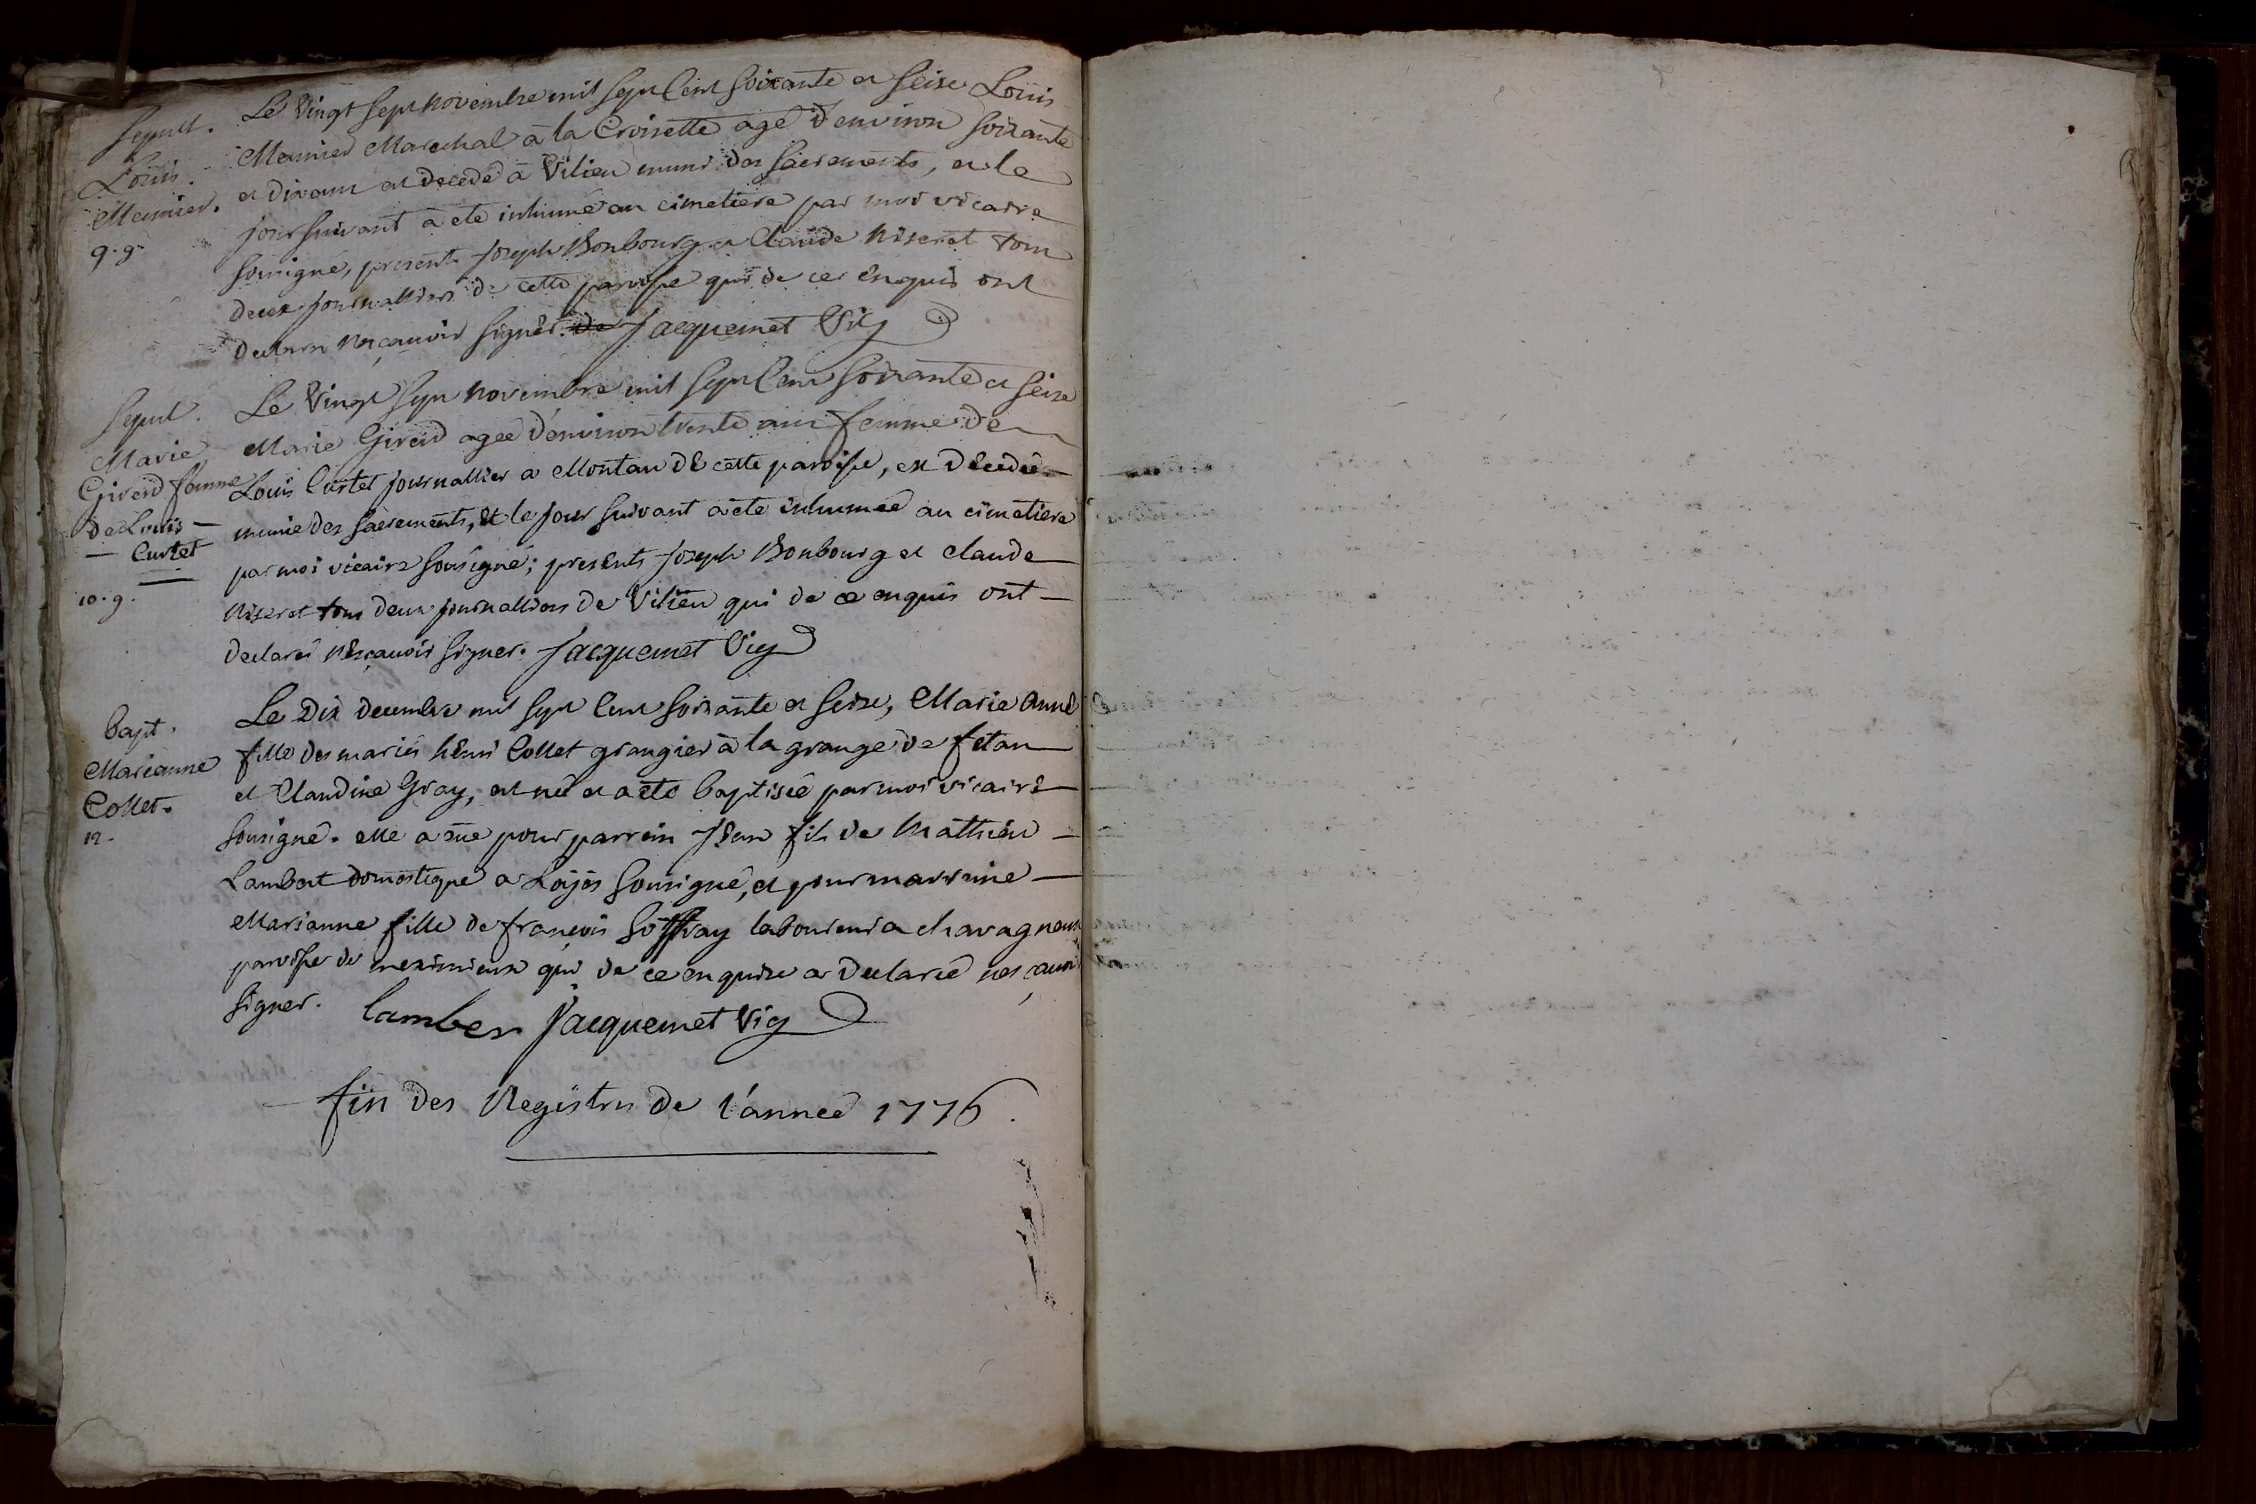 Sepult.
Louis
Meunier.
9.g.
Le Vingt Sept Novembre mil Sept Cent Soixante et Seize Louis
Meunier Marechal à la Croisette agé d'environ Soixante
et dix ans est decedé a Vilieu muni des Sacrements, et le
jour suivant à eté inhumé au cimetiere par moi vicaire
soussigne, presents Joseph Bonbourg et Claude Niseret tous
deux journalliers de cette paroisse qui de ce enquis ont
declaré ne sçauoir signer. Jacquemet Vic
Sepul.
Marie
Gireid femme
de Louis
Curtet
10.g.
Le Vingt Sept Novembre mil Sept Cent Soixante et Seize
Marie Gireid agée d'environ trente ans femme de
Louis Curtet journallier a Montan de cette paroisse, est decedée
munie des Sacrements, et le jour suivant a ete inhumée au cimetiere
par moi vicaire sousigné; presents Joseph Bonbourg et Claude
Niseret tous deux journalliers de Vilieu qui de ce enquis ont
declaré ne sçauoir signer. Jacquemet Vic
bapt.
Marianne
Collet.
12.
Le Dix decembre mil Sept Cent Soixante et Seize, Marie Anne
fille des mariés henri Collet grangier à la grange de fétan
et Claudine Gray, est née et a éte baptisée par moi vicaire
sousigné. elle a eue pour parrein Jean fils de Mathieu
Lambert domestique a Loÿes sousigné, et pour marreine
Marianne fille de françois Soffray laboureur a chavagneux
paroisse de meximieux qui de ce enquise a declaré ne sçauoir
signer. lamber Jacquemet Vic
fin des Registres de l'année 1776.